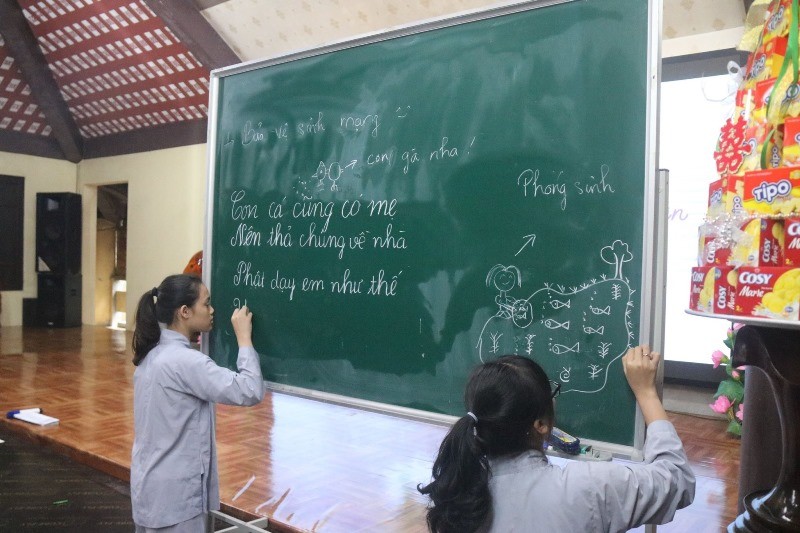 1. Bảo vệ sinh mạng
con gà nha!
Con cá cũng có mẹ
Nên thả chúng về nhà
Phật dạy em như thế
Phóng sinh
TIPO
COSY
Marie
COSY
Marie